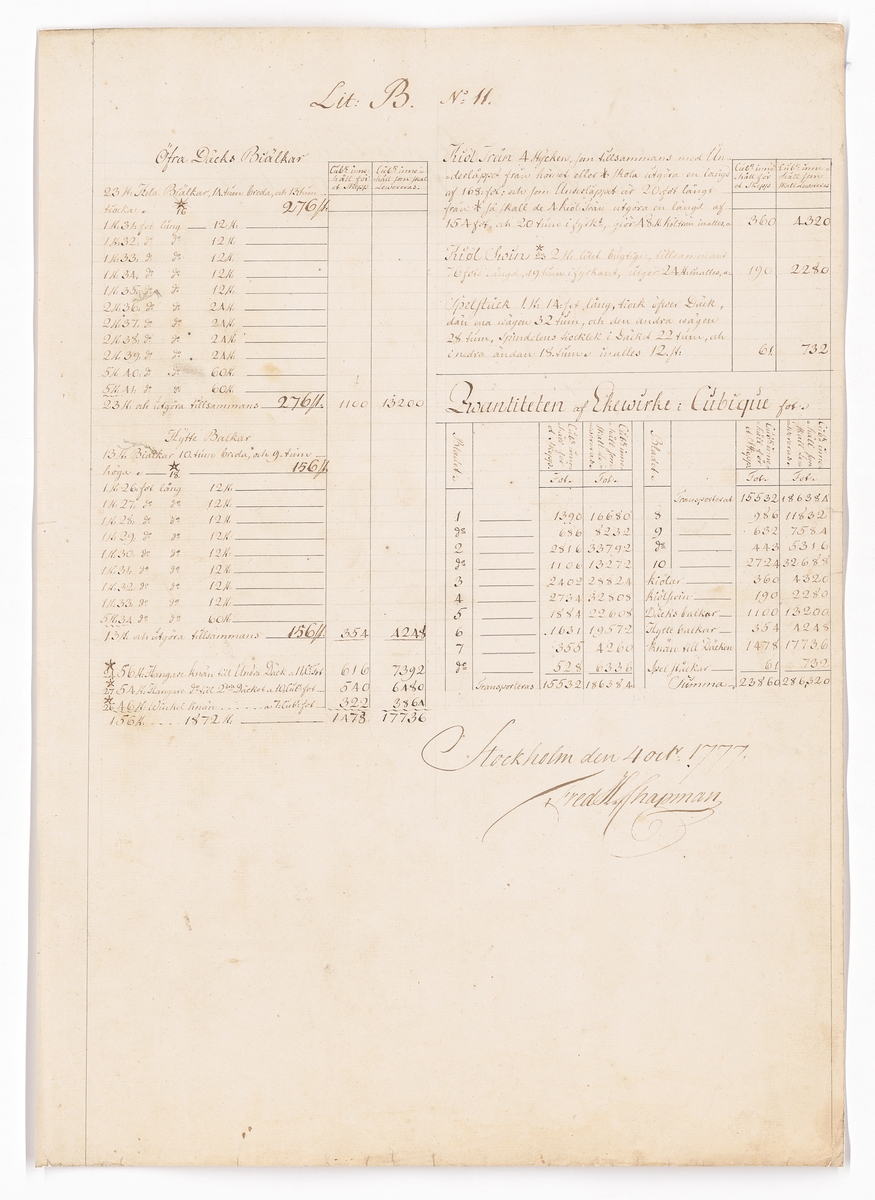 Lit: B. No 11.
Öfra Däcks Biälkar
Cubq inne-
håll för
et Skepp
Cubq inne-
håll som skal
Lewereras
23 st. Hela Biälkar, 14 tum breda, och 13 tum
tiocka. * 16 276 st.
1 st. 31. fot lång 12 st.
1 st. 32. do do 12 st.
1 st. 33. do do 12 st.
1 st. 34. do do 12 st.
1 st. 35. do do 12 st.
2 st. 36. do do 24 st.
2 st. 37. do do 24 st.
2 st. 38. do do 24 st.
2 st. 39. do do 24 st.
5 st. 40. do do 60 st.
5 st. 41. do do 60 st.
23 st. och utgöra tillsammans 276 st. 1100 13200
Hytte Balkar
13 st. Biälkar 10 tum breda, och 9 tum
höga. * 18 156 st.
1 st. 26. fot lång 12 st.
1 st. 27. do do 12 st.
1 st. 28. do do 12 st.
1 st. 29. do do 12 st.
1 st. 30. do do 12 st.
1 st. 31. do do 12 st.
1 st. 32. do do 12 st.
1 st. 33. do do 12 st.
5 st. 34. do do 60 st.
13 st. och utgöra tillsammans 156 st. 354 4248
* 56 st. Hangare knän till Undra Däck a 11 Cub. fot 616 7392
* 27 54 st. Hangare do till 2dra Däcket a 10 Cub. fot 540 6480
* 26 46 st. Winckel knän a 7 Cub. fot 322 3864
156 st. 1872 st. 1478 17736
Kiöl Trän 4 stycken, som tillsammans med Un-
derslappet från hörnet eller * skola utgöra en längd
af 168 fot; och som Underslappet är 20 fot långt
från * så skall de 4 kiöl trän utgöra en längd af
154 fot, och 20 tum i fyrk., giör 48 st kiölträn inalles 360 4320
Cubq inne-
håll för
et Skepp
Cubq inne-
håll som
skal Lewereras
Kiöl Swin * 23 2 st. litet bugtige, tillsammans
76 fots längd, 19 tum i fyrkant, utgör 24 st. inalles 190 2280
Spelstück 1 st. 14 fot lång, tiock öfver Däck,
den ena wägen 32 tum, och den andra wägen
28 tum, Spindelens tiocklek i Däcket 22 tum, och
i nedra ändan 18 tum. inalles 12 st. 61 732
Qwantiteten af Ekewirke i Cubique fot.
Bladet
Cubq inne-
håll för
et Skepp.
Cubq inne-
håll som
skall Le-
wereras.
Bladet
Cubq inne-
håll för
et Skepp.
Cubq inne-
håll som
skall Le-
wereras.
Fot. Fot. Fot. Fot.
Transporterat 15532 186384
1 1390 16680 8 986 11832
do 686 8232 9 632 7584
2 2816 33792 do 443 5316
do 1106 13272 10 2724 32688
3 2402 28824 kiölar 360 4320
4 2734 32808 kiölswin 190 2280
5 1884 22608 Däcks balkar 1100 13200
6 1631 19572 Hytte balkar 354 4248
7 355 4260 Knän till Däcken 1478 17736
do 528 6336 Spel Stückar 61 732
Transporteras 15532 186384 Summa 23860 286320
Stockholm den 4 octr. 1777.
Fred H Chapman